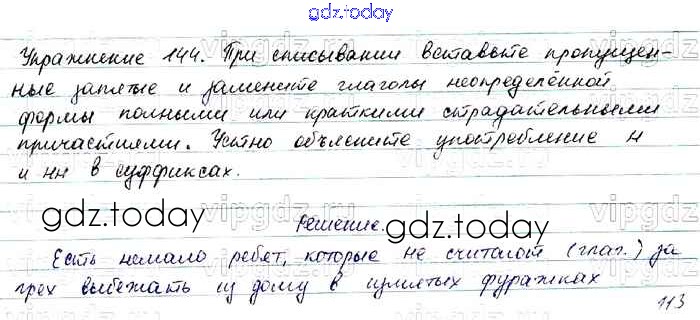 gdz.today
Упражнение 144. При списывании вставьте пропущен-
ные запятые и замените глаголы неопределённой
формы полными или краткими страдательными
причастиями. Устно объясните употребление н
и нн в суффиксах.
gdz.today Решение. gdz.today
Есть немало ребят, которые не считают (глаг.) за
грех выбежать из дому в измятых фуражках
113